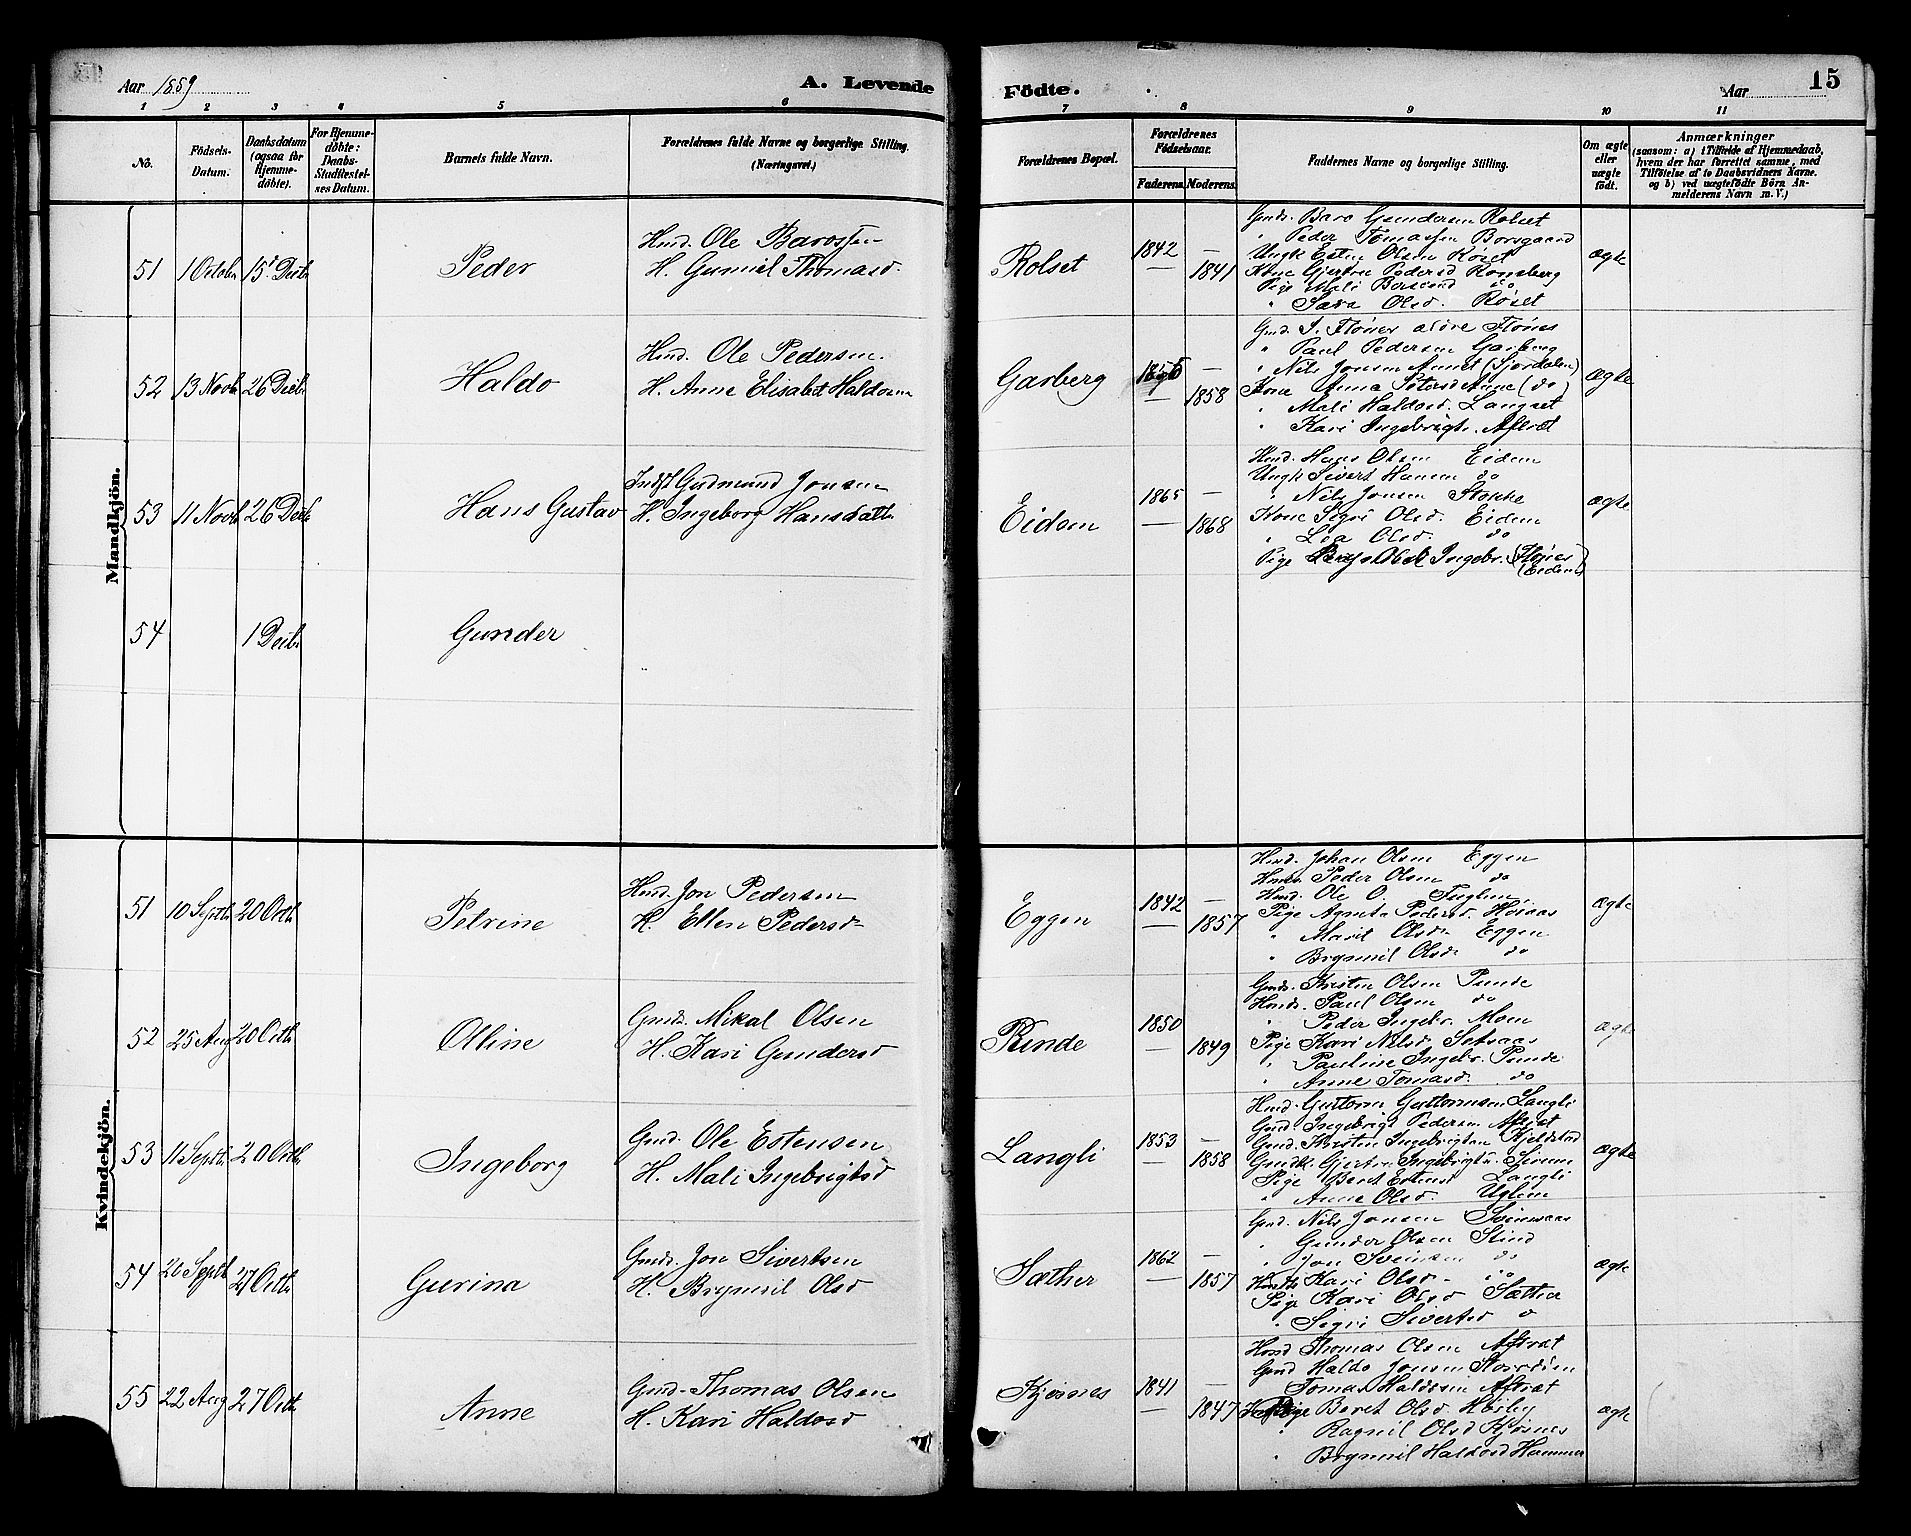 Aar 1889
A. Levende
Födte.
Aar
15
1 2 3 4 5 6 7 8 9 10 11
No.
Födsels-
Datum.
Daabsdatum
(ogsaa for
Hjemme-
döbte).
For Hjemme-
döbte:
Daabs-
Stadfæstel-
ses Datum.
Barnets fulde Navn.
Forældrenes fulde Navne og borgerlige Stilling.
(Næringsvei.)
Forældrenes Bopæl.
Forældrenes
Födselsaar.
Faderens.
Moderens.
Faddernes Navne og borgerlige Stilling.
Om ægte
eller
uægte
födt.
Anmærkninger
(saasom: a) i Tilfælde af Hjemmedaab,
hvem der har forrettet samme, med
Tilföielse af to Daabsvidners Navne.
og b) ved uægtefödte Börn An-
melderens Navn m. V.)
Mandkjön.
51 1 Octobr 15' Decbr
Peder
Hmd. Ole Barossen
H. Gunnil Thomasd.
Rolset
1842 —
— 1841
Gmd. Baro Gundersen Rolset
" Peder Tomassen Borsgaard
Ungk Esten Olsen Roset
Kone Gjertru Pedersd Ronsberg
Pige Mali Do
" Sara Olsd. Röset
ægte
52 13 Novb 26 Decbr
Haldo
Hmd. Ole Pedersen
H. Anne Elisabet Haldosen
Garberg
—
— 1858
Gmd. J. Flönes Flönes
" Paul Pedersen Garberg
" Nils Jonsen (Stjørdalen)
Kone Anna (do)
" Mali Haldosd. Langset
" Kari Ingebrigts. Aftret
ægte
53 11 Novb 26 Decbr
Hans Gustav
Indst Gudmund Jonsen
H. Ingeborg Hansdatte
Eidem
1865 —
— 1868
Hmd. Hans Olsen Eidem
Ungk Sivert Hansen do
" Nils Jonsen Stokke
Kone Sigri Olsd. Eidem
" Lea Olsd. do
Pige Ingebr. (Flönes
(Eidem)
ægte
54 1 Decbr
Gunder
Kvindekjön.
51 10 Septb 20 Octb
Petrine
Hmd. Jon Pedersen
H. Ellen Pedersd
Eggen
1842 —
— 1857
Hmd. Johan Olsen Eggen
Hmd. Peder Olsen do
Hmd. Ole O. Fuglem
Pige Agneta Pedersd. Hosaas
" Marit Olsd. Eggen
" Brynnil Olsd. do
ægte
52 25 Aug 20 Octb
Olline
Gmd. Mikal Olsen
H. Kari Gundersd
Runde
1850 —
— 1849
Gmd. Kristen Olsen Runde
Hmd. Paul Olsen do
" Peder Ingebr. Moen
Pige Kari Nilsd Setsaas
" Pauline Ingebr. Runde
" Anne Tomasd. do
ægte
53 11 Septb 20 Octb
Ingeborg
Gmd. Ole Estensen
H. Mali Ingebrigtsd
Langli
1853 —
— 1858
Hmd. Guttorm Guttormsen Langli
Gmd. Ingebrigt Pedersen Aftret
Gmd. Kristen Ingebrigtsen Kjeldstad
Gmdk. Gjertru Ingebrigtsd. Sirum
Pige Beret Estensd Langli
" Anne Olsd. Uglem
ægte
54 26 Septb 27 Octb
Gurina
Gmd. Jon Sivertsen
H. Brynnil Olsd
Sæther
1862 —
— 1857
Gmd. Nils Jonsen Svinsaas
" Gunder Olsen Stind
" Jon Svendsen do
Kari Olsd. do
Pige Kari Olsd Sætter
" Sigri Sivertsd do
ægte
55 22 Aug 27 Octb
Anne
Gmd. Thomas Olsen
H. Kari Haldosd
Kjösnes
1841 —
— 1847
Hmd Thomas Olsen Aftret
Gmd Haldo Jonsen
Tomas Haldosen Aftret
Pige Beret Olsd Hösby
" Ragnil Olsd Kjösnes
" Brynnil Haldosd Hammer
ægte